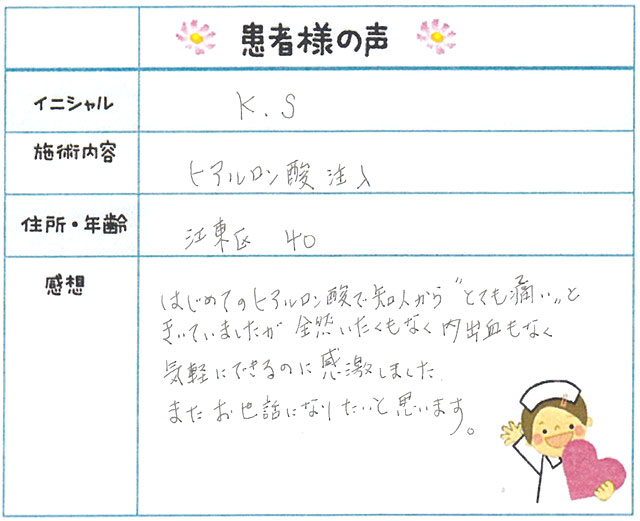 患者様の声
イニシャル K.S
施術内容 ヒアルロン酸 注入
住所・年齢 江東区 40
感想
はじめてのヒアルロン酸で知人から“とても痛い”と
きいていましたが 全然いたくもなく内出血もなく
気軽にできるのに感激しました
またお世話になりたいと思います。